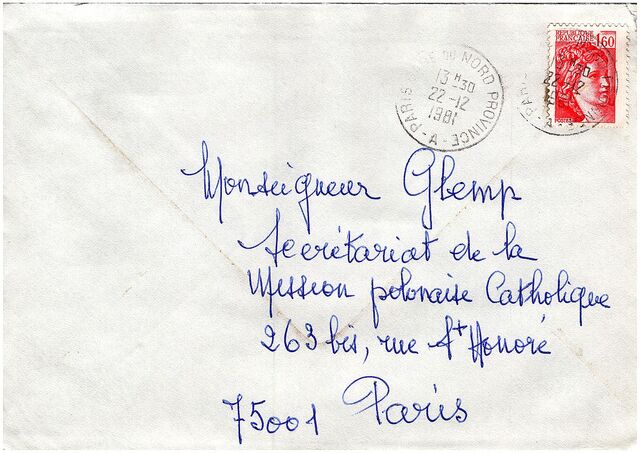 REPUBLIQUE
FRANCAISE 1,60
POSTES
PARIS GARE DU NORD PROVINCE
13 H 30
22-12
1981
-A-
Monseigneur Glemp
Secrétariat de la
Mission polonaise Catholique
263 bis, rue St Honoré
75001 Paris